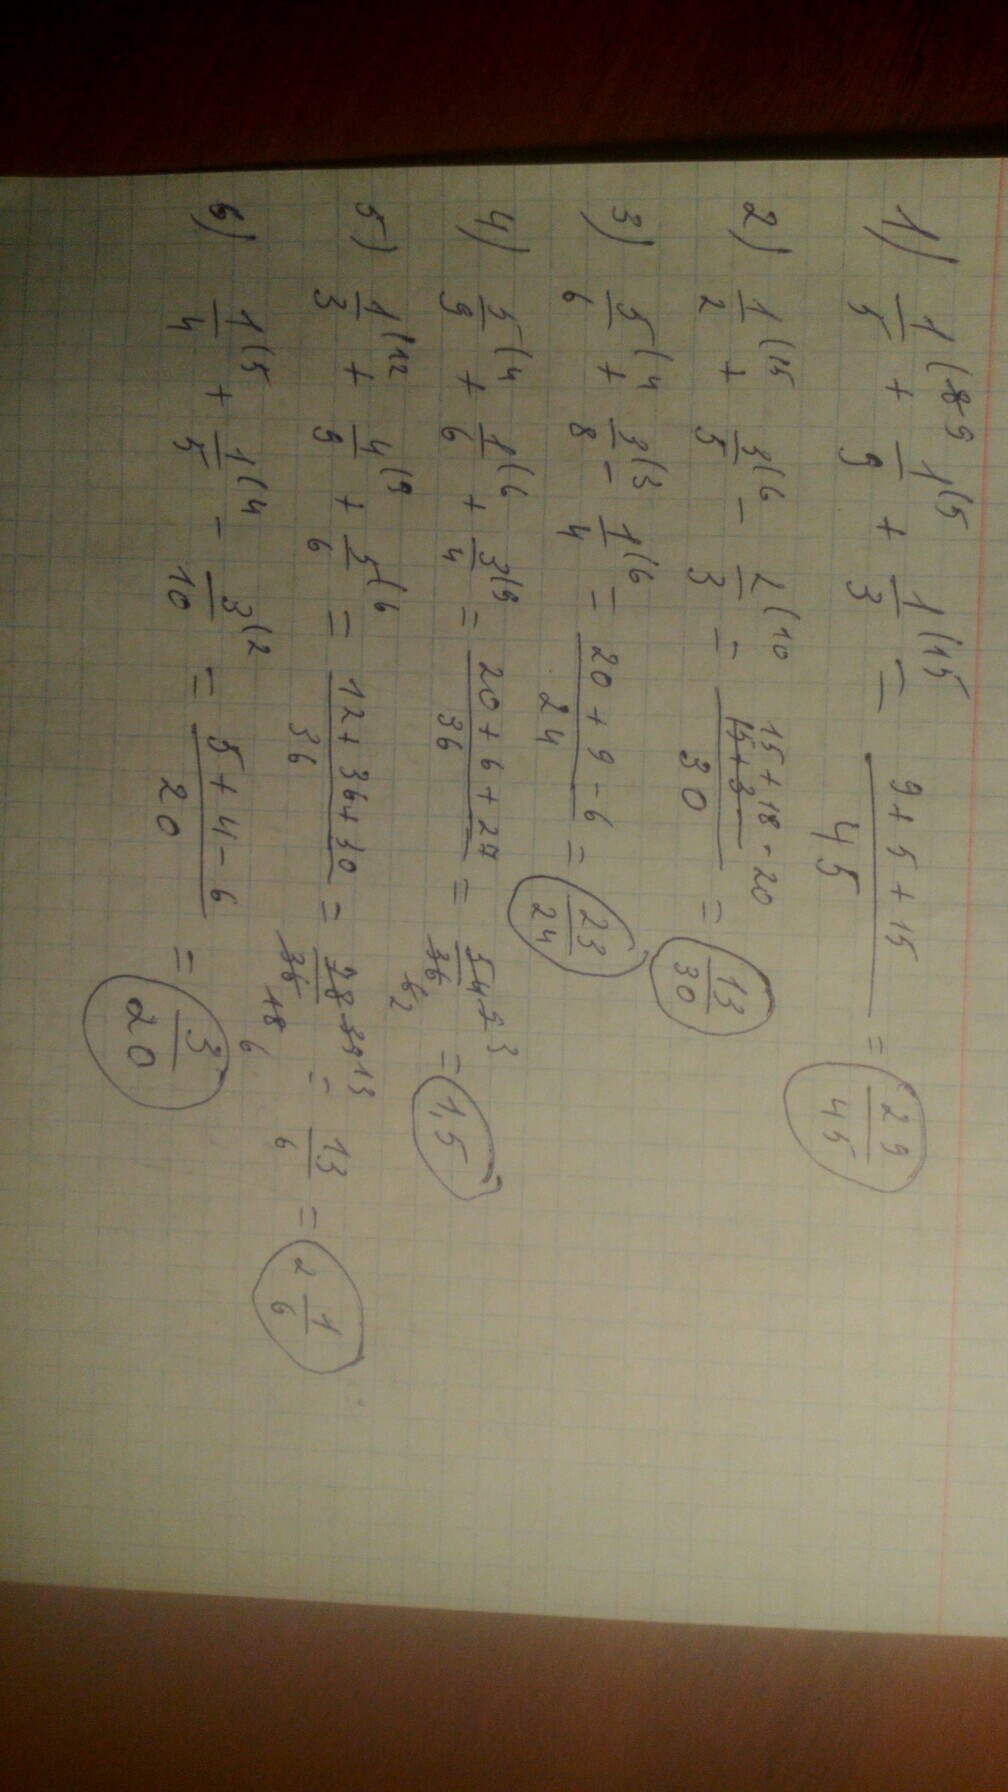 1) 1/5 (89 + 1/9 (5 + 1/3 (15 = 9+5+15/45 = 29/45
2) 1/2 (15 + 3/5 (6 - 2/3 (10 = 15+18-20/30 = 13/30
3) 5/6 (4 + 3/8 (3 - 1/4 (6 = 20+9-6/24 = 23/24
4) 5/9 (4 + 1/6 (6 + 3/4 (9 = 20+6+27/36 = 54 3/36 2 = 1,5
5) 1/3 (12 + 4/9 (9 + 5/6 (6 = 12+36+30/36 = 78 39 13/36 18 6 = 13/6 = 2 1/6
6) 1/4 (5 + 1/5 (4 - 3/10 (2 = 5+4-6/20 = 3/20